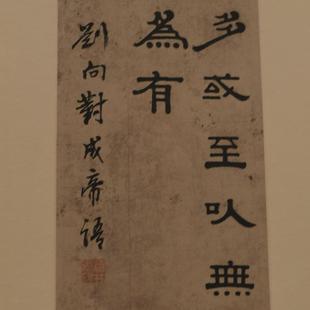 多或至以無
為有
劉向對成帝語